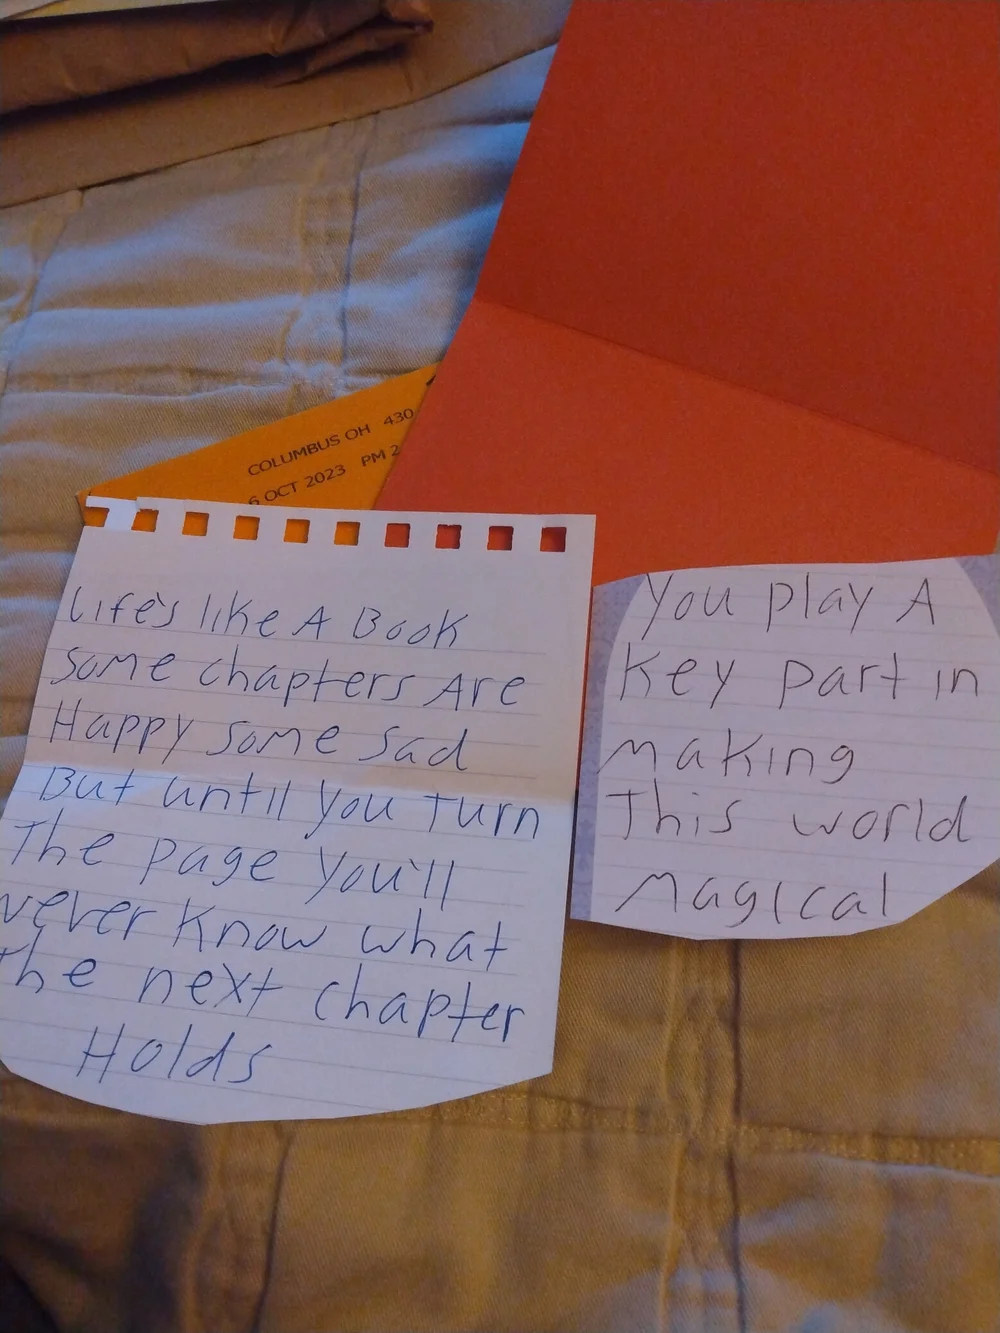 COLUMBUS OH 430
6 OCT 2023 PM 2
Life's like A Book
some chapters Are
Happy some sad
But until you turn
The page you'll
never know what
the next chapter
Holds
You play A
key part in
making
This world
magical